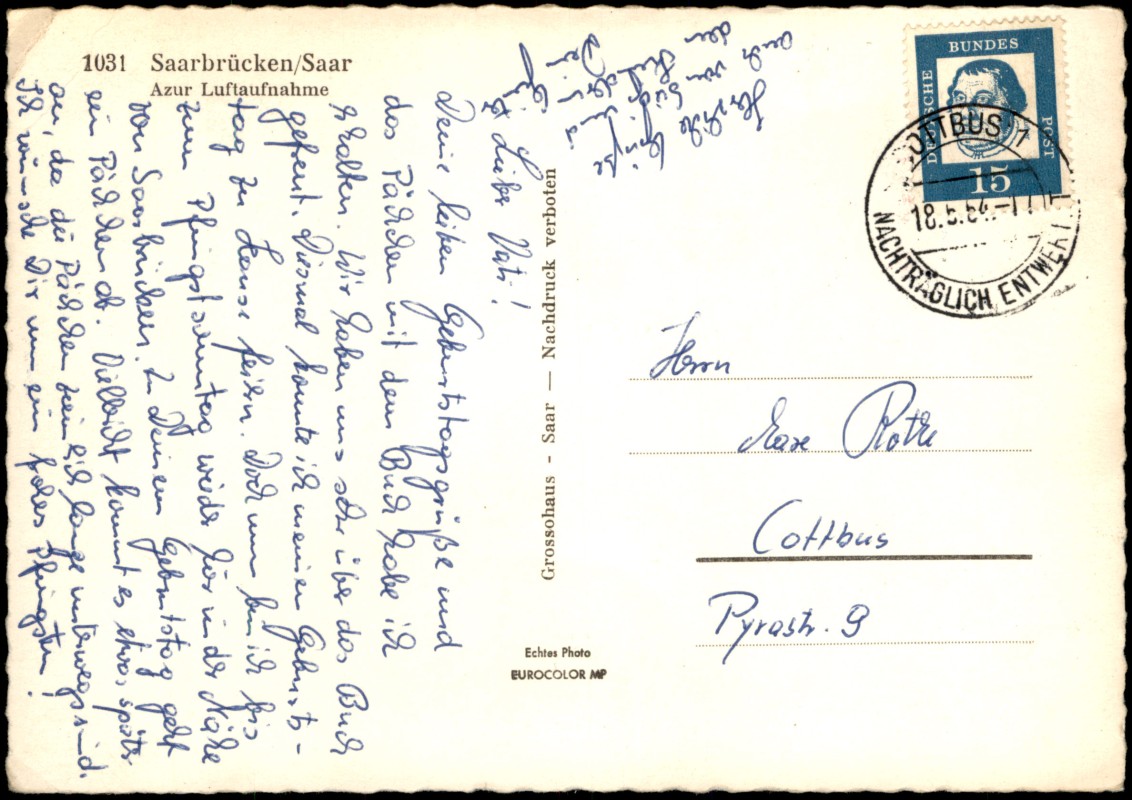 1031 Saarbrücken/Saar
Azur Luftaufnahme
Lieber Vati!
Deine lieben Geburtstagsgrüße und
das Päckchen mit dem Buch habe ich
erhalten. Wir haben uns sehr über das Buch
gefreut. Diesmal konnte ich meinen Geburts-
tag zu Hause feiern. Doch nun bin ich bis
zum Pfingstsonntag wieder hier in der Nähe
von Saarbrücken. Zu Deinem Geburtstag geht
ein Päckchen ab. Vielleicht kommt es etwas später
an, da die Päckchen ziemlich lange unterwegs sind.
Ich wünsche Dir nun ein frohes Pfingsten!
Herzliche Grüße
auch von
den Kindern
Dein
Grossohaus - Saar — Nachdruck verboten
Echtes Photo
EUROCOLOR MP
DEUTSCHE BUNDES POST
15
COTTBUS 1
18.5.64.-17
NACHTRÄGLICH ENTWERTET
Herrn
Max Roth
Cottbus
Pyrastr. 9